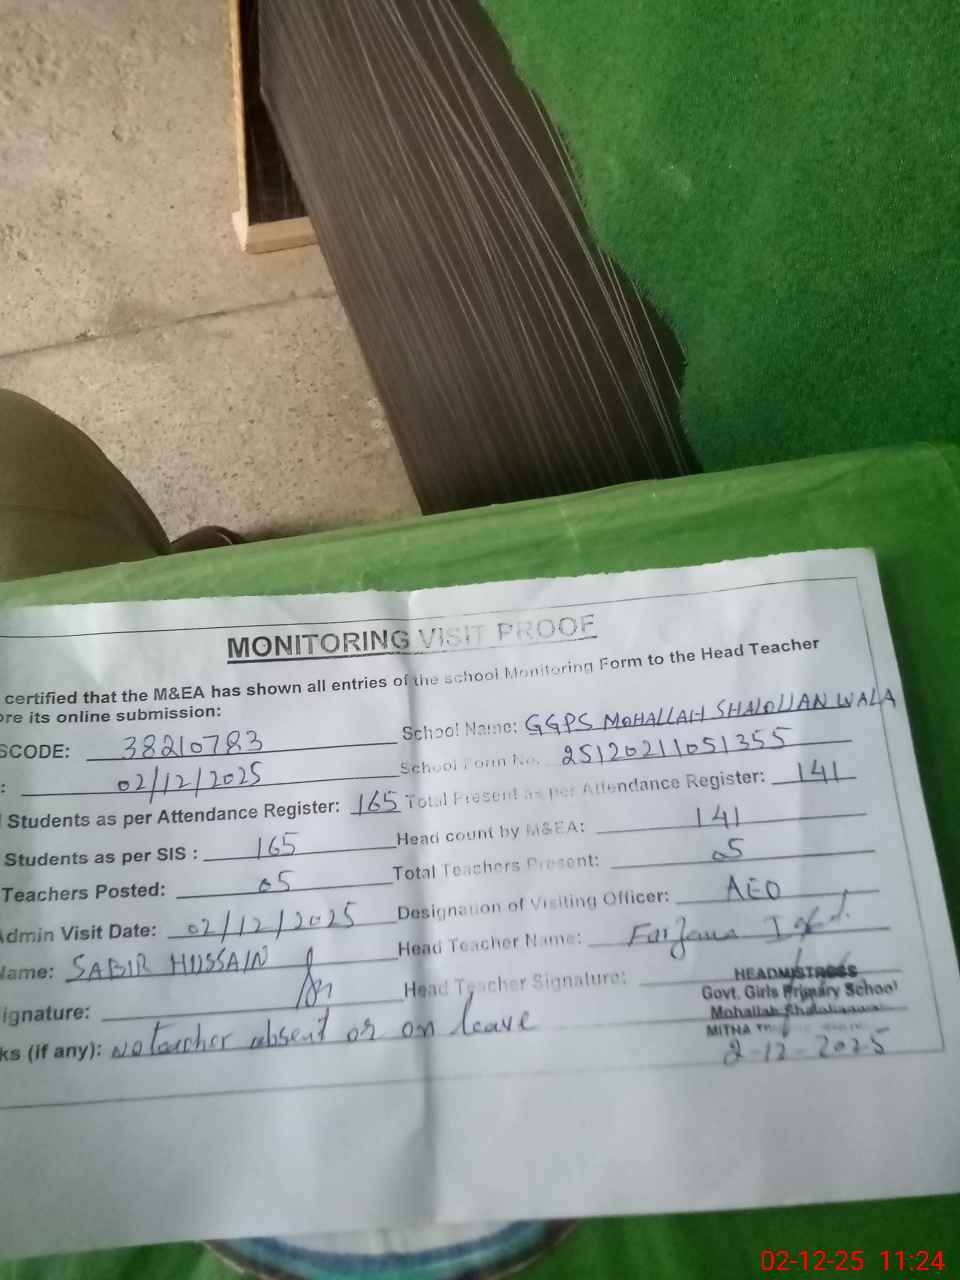 MONITORING VISIT PROOF
certified that the M&EA has shown all entries of the school Monitoring Form to the Head Teacher
ore its online submission:
SCODE: 38210783 School Name: GGPS MOHALLAH SHALOLIAN WALA
: 02/12/2025 School Form No. 25120211051355
Students as per Attendance Register: 165 Total Present as per Attendance Register: 141
Students as per SIS : 165 Head count by M&EA: 141
Teachers Posted: 05 Total Teachers Present: 05
Admin Visit Date: 02/12/2025 Designation of Visiting Officer: AEO
Name: SABIR HUSSAIN Head Teacher Name: Farzana
ignature: Head Teacher Signature:
HEADMISTRESS
Govt. Girls Primary School
Mohallah
MITHA
2-12-2025
ks (if any): No teacher absent or on leave
02-12-25 11:24